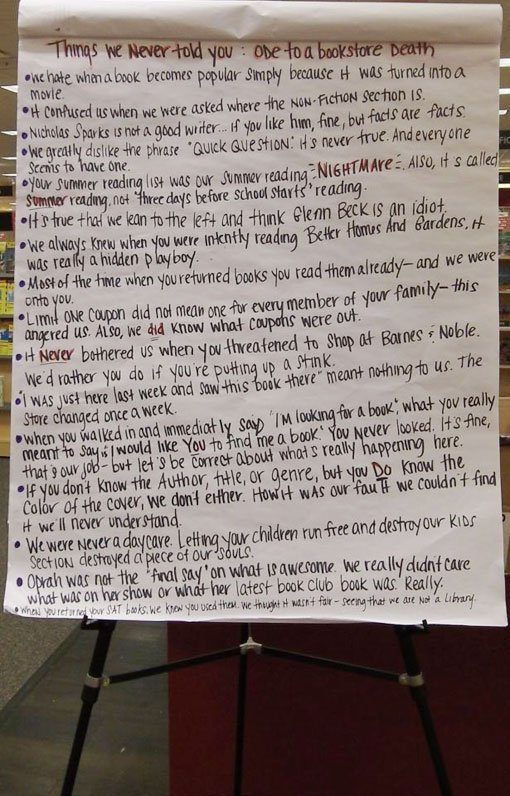 Things we Never told you : Ode to a bookstore Death
• We hate when a book becomes popular simply because it was turned into a
movie.
• It confused us when we were asked where the NON-FICTION section is.
• Nicholas Sparks is not a good writer... if you like him, fine, but facts are facts.
• We greatly dislike the phrase "QUICK QUESTION." It's never true. And everyone
seems to have one.
• Your summer reading list was our summer reading NIGHTMARE. Also, it s called
summer reading, not "three days before school starts" reading.
• It's true that we lean to the left and think Glenn Beck is an idiot.
• We always knew when you were intently reading Better Homes And Gardens, it
was really a hidden Playboy.
• Most of the time when you returned books you read them already— and we were
onto you.
• Limit ONE coupon did not mean one for every member of your family— this
angered us. Also, we did know what coupons were out.
• It Never bothered us when you threatened to shop at Barnes & Noble.
We'd rather you do if you're putting up a stink.
• "I was just here last week and saw this book there" meant nothing to us. The
store changed once a week.
• When you walked in and immediatly said "I'm looking for a book", what you really
meant to say is "I would like You to find me a book." You never looked. It's fine,
that's our job - but let's be correct about what's really happening here.
• If you don't know the Author, title, or genre, but you Do know the
color of the cover, we don't either. How it was our fault we couldn't find
it we'll never understand.
• We were never a daycare. Letting your children run free and destroy our KIDS
section destroyed a piece of our souls.
• Oprah was not the "final say" on what is awesome. We really didn't care
what was on her show or what her latest book club book was. Really.
• When you returned your SAT books, we knew you used them. We thought it wasn't fair - seeing that we are Not a library.